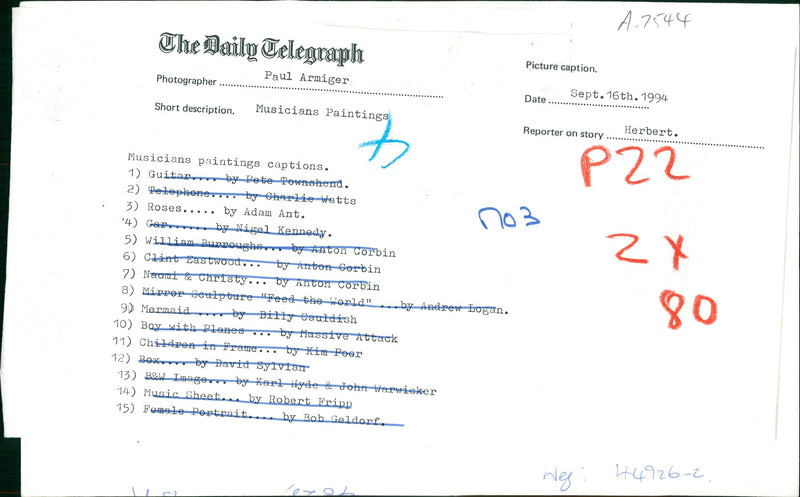 A.7544
The Daily Telegraph
Photographer Paul Armiger
Short description. Musicians Paintings
Picture caption.
Date Sept.16th.1994
Reporter on story Herbert.
P22
NO3
2 X
80
Musicians paintings captions.
1) Guitar.... by Pete Townshend.
2) Telephone.... by Charlie Watts
3) Roses..... by Adam Ant.
4) Car...... by Nigel Kennedy.
5) William Burroughs... by Anton Corbin
6) Clint Eastwood... by Anton Corbin
7) Naomi & Christy... by Anton Corbin
8) Mirror Sculpture "Feed the World" ...by Andrew Logan.
9) Mermaid ..... by Billy Cauldish
10) Boy with Planes ... by Massive Attack
11) Children in Frame... by Kim Poor
12) Box.... by David Sylvian
13) B&W Image... by Karl Hyde & John Warwicker
14) Music Sheet... by Robert Fripp
15) Female Portrait.... by Bob Geldorf.
Neg: 44926-c.